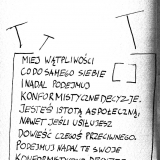 MIEJ WĄTPLIWOŚCI
CO DO SAMEGO SIEBIE
I NADAL PODEJMUJ
KONFORMISTYCZNE DECYZJE.
JESTEŚ ISTOTĄ ASPOŁECZNĄ,
NAWET JEŚLI USIŁUJESZ
DOWIEŚĆ CZEGOŚ PRZECIWNEGO.
PODEJMUJ NADAL TE SWOJE